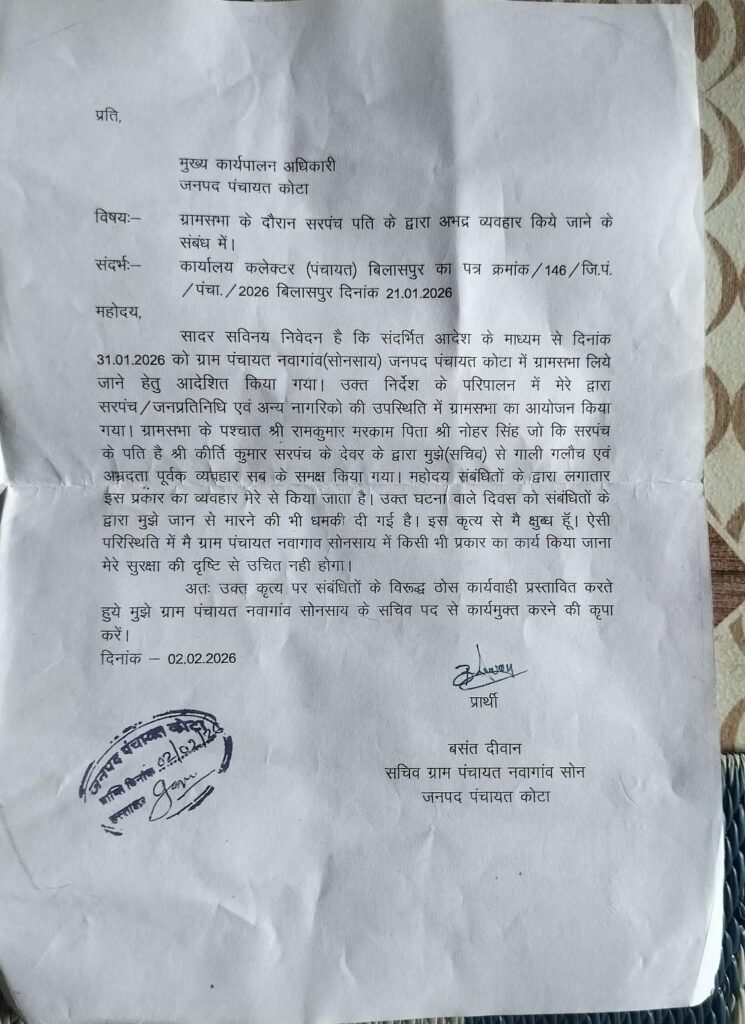 प्रति,
मुख्य कार्यपालन अधिकारी
जनपद पंचायत कोटा
विषयः– ग्रामसभा के दौरान सरपंच पति के द्वारा अभद्र व्यवहार किये जाने के
संबंध में।
संदर्भः– कार्यालय कलेक्टर (पंचायत) बिलासपुर का पत्र क्रमांक/146/जि.पं.
/पंचा./2026 बिलासपुर दिनांक 21.01.2026
महोदय,
सादर सविनय निवेदन है कि संदर्भित आदेश के माध्यम से दिनांक
31.01.2026 को ग्राम पंचायत नवागांव(सोनसाय) जनपद पंचायत कोटा में ग्रामसभा लिये
जाने हेतु आदेशित किया गया। उक्त निर्देश के परिपालन में मेरे द्वारा
सरपंच/जनप्रतिनिधि एवं अन्य नागरिको की उपस्थिति में ग्रामसभा का आयोजन किया
गया। ग्रामसभा के पश्चात श्री रामकुमार मरकाम पिता श्री नोहर सिंह जो कि सरपंच
के पति है श्री कीर्ति कुमार सरपंच के देवर के द्वारा मुझे(सचिव) से गाली गलौच एवं
अभ्रदता पूर्वक व्यवहार सब के समक्ष किया गया। महोदय संबंधितों के द्वारा लगातार
इस प्रकार का व्यवहार मेरे से किया जाता है। उक्त घटना वाले दिवस को संबंधितों के
द्वारा मुझे जान से मारने की भी धमकी दी गई है। इस कृत्य से मै क्षुब्ध हूँ। ऐसी
परिस्थिति में मै ग्राम पंचायत नवागाव सोनसाय में किसी भी प्रकार का कार्य किया जाना
मेरे सुरक्षा की दृष्टि से उचित नही होगा।
अतः उक्त कृत्य पर संबंधितों के विरूद्ध ठोस कार्यवाही प्रस्तावित करते
हुये मुझे ग्राम पंचायत नवागांव सोनसाय के सचिव पद से कार्यमुक्त करने की कृपा
करें।
दिनांक – 02.02.2026
प्रार्थी
बसंत दीवान
सचिव ग्राम पंचायत नवागांव सोन
जनपद पंचायत कोटा
जनपद पंचायत कोटा
प्राप्ति दिनांक 02/02/26
हस्ताक्षर